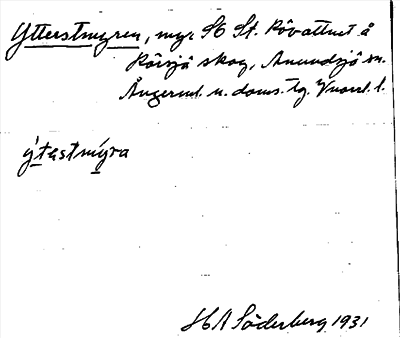 Ytterstmyren, myr SO St. Rövattnet å
Rörsjö skog, Anundsjö sn.
Ångerml. n. doms. tg. Vnorrl. l.
ýtastmýra
H A Söderberg 1931